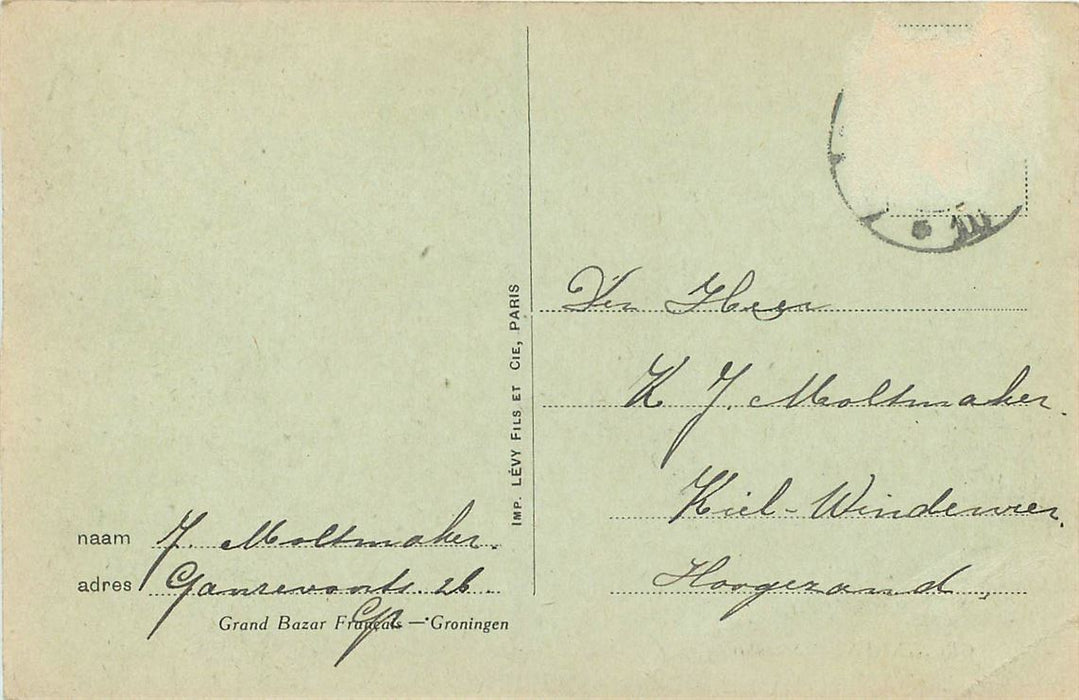 naam J. Moltmaker.
adres Ganzevoorts. 26.
Grand Bazar Français — Groningen
IMP. LÉVY FILS ET CIE, PARIS
Den Heer
K J. Moltmaker.
Kiel-Windeweer.
Hoogezand.